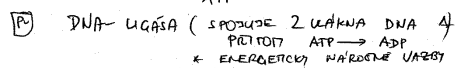 Př DNA-LIGÁSA ( SPOJUJE 2 VLÁKNA DNA
PŘITOM ATP → ADP
* ENERGETICKY NÁROČNÉ VAZBY